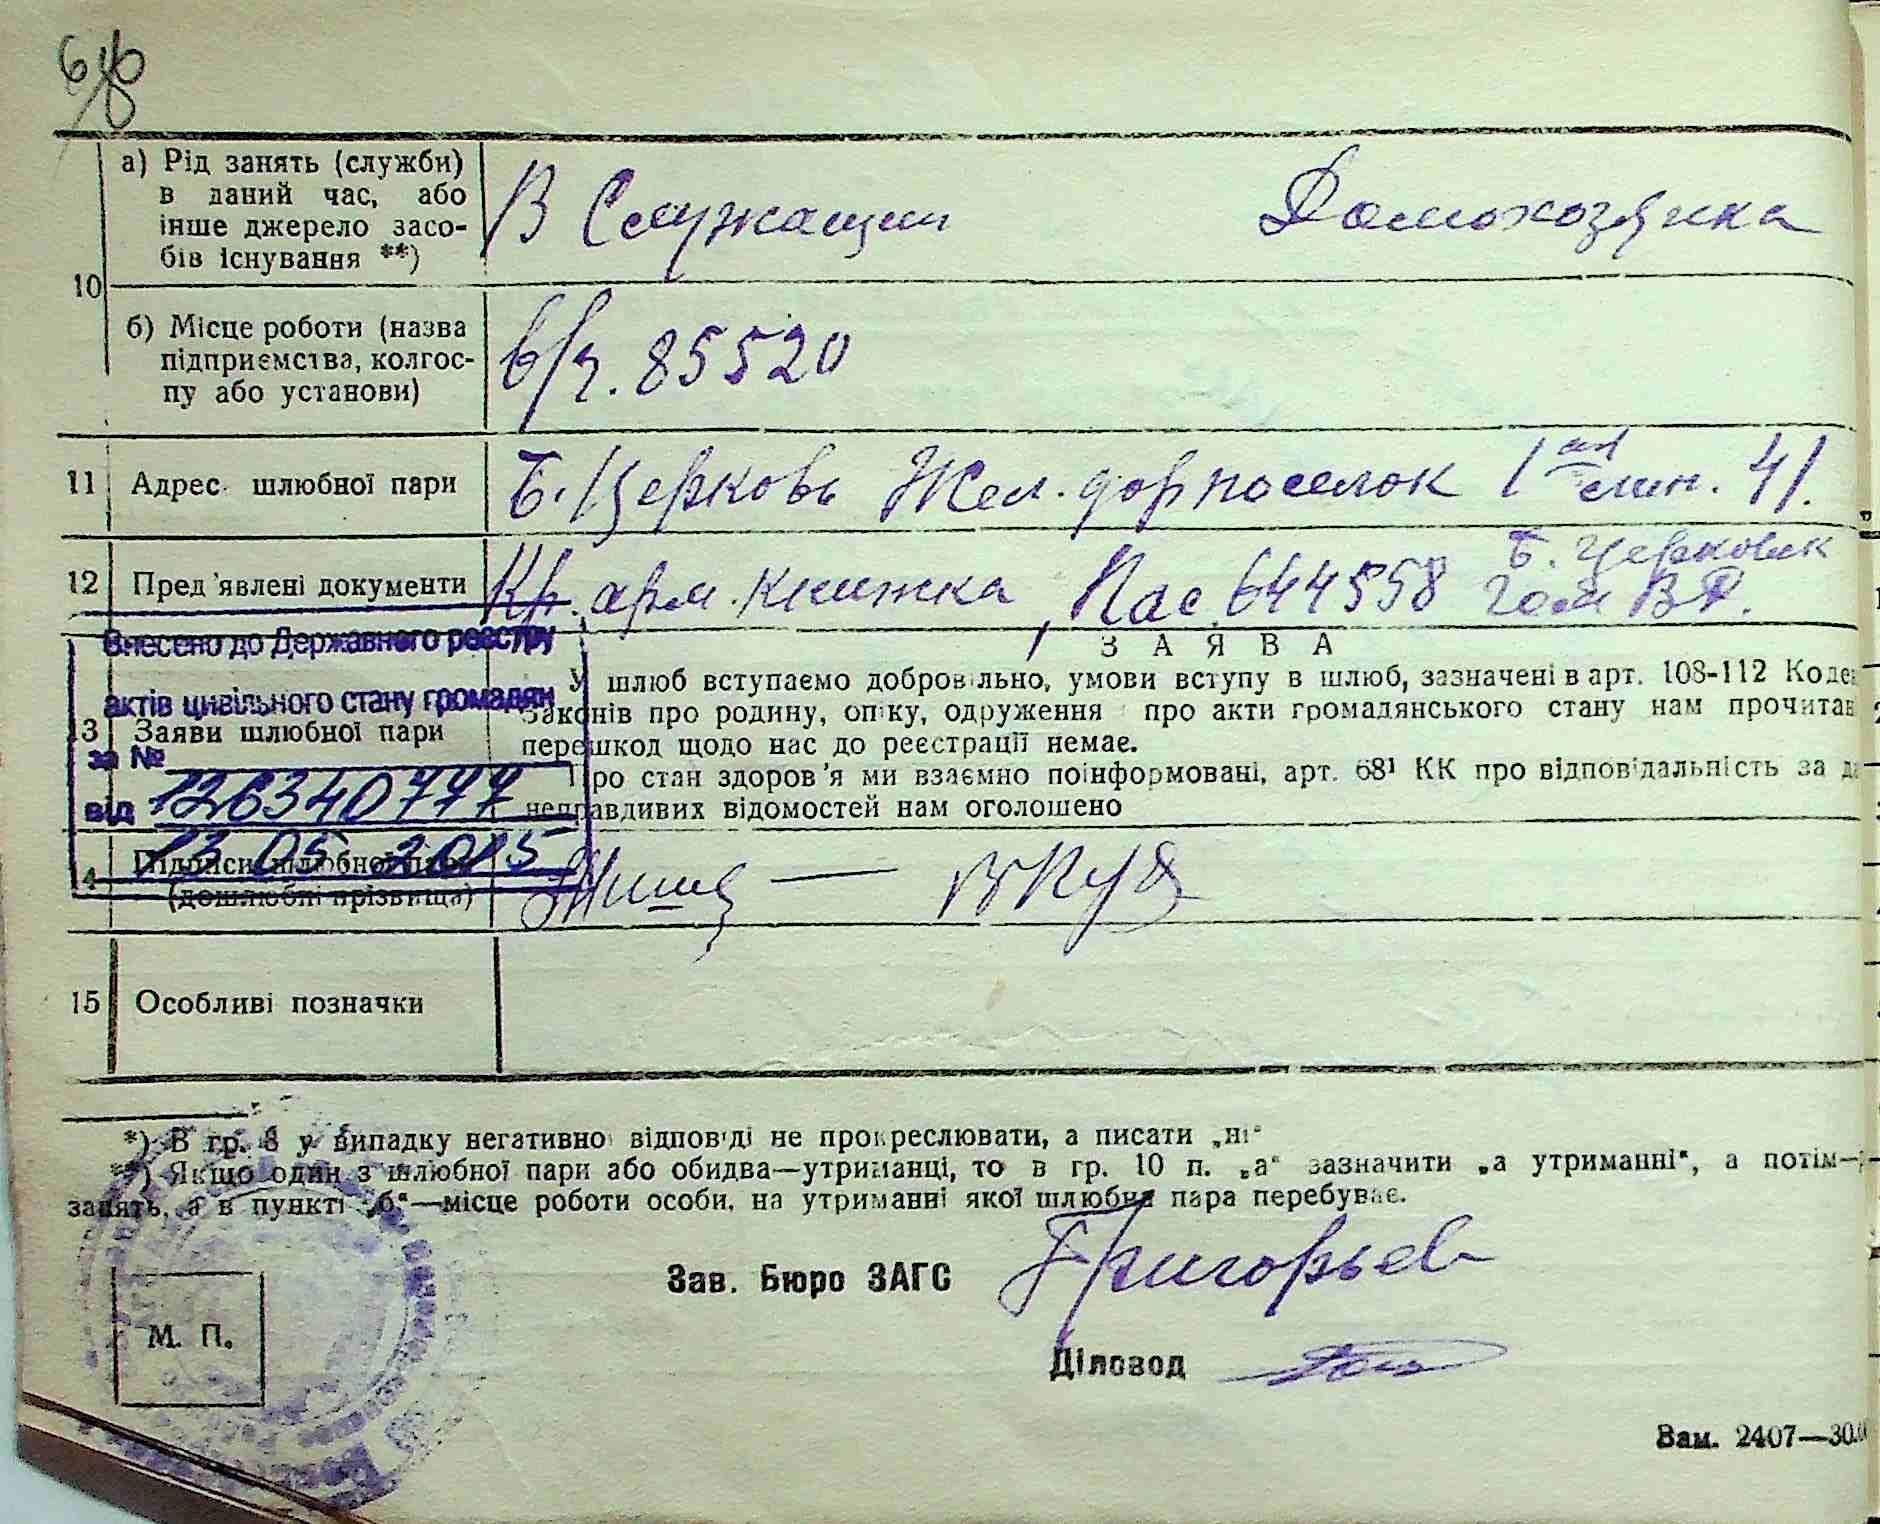 а) Рід занять (служби)
в даний час, або
інше джерело засо-
бів існування **)
В Служащии
Домохозяика
10
б) Місце роботи (назва
підприємства, колгос-
пу або установи)
в/ч. 85520
11 Адрес шлюбної пари
Б. Церковь Жел. дор поселок 1ая лин. 41.
12 Пред'явлені документи
Кр. арм. книжка, Пас 644558
Б. Церковск
ГОМ
Внесено до Державного реєстру
актів цивільного стану громадян
за №
від 126340777
13 05 2015
З А Я В А
13 Заяви шлюбної пари
У шлюб вступаємо добровільно, умови вступу в шлюб, зазначені в арт. 108-112
законів про родину, опіку, одруження про акти громадянського стану нам
перешкод щодо нас до реєстрації немає.
Про стан здоров'я ми взаємно поінформовані, арт. 68¹ КК про відповідальність за
неправдивих відомостей нам оголошено
4 Підписи шлюбної пари
(дошлюбні прізвища)
15 Особливі позначки
*) В гр. 8 у випадку негативної відповіді не прокреслювати, а писати „ні“
**) Якщо один з шлюбної пари або обидва—утриманці, то в гр. 10 п. „а“ зазначити „а утриманні“, а потім—
занять, а в пункті „б“—місце роботи особи, на утриманні якої шлюбна пара перебуває.
Зав. Бюро ЗАГС Григорьев
М. П.
Діловод
Зам. 2407—30.